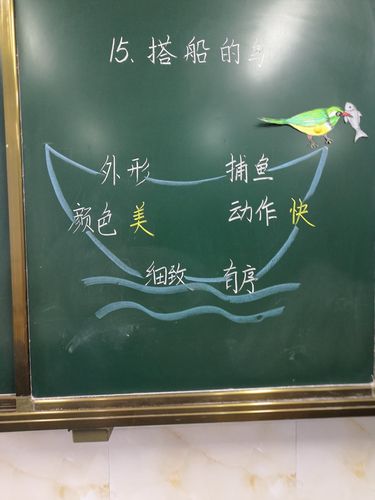 15、搭船的鸟
外形 捕鱼
颜色 美 动作 快
细致 有序